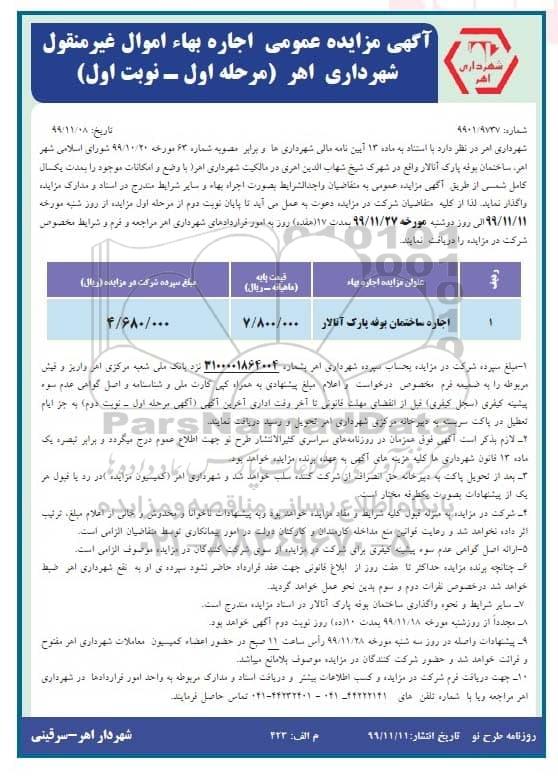 آگهی مزایده عمومی اجاره بهاء اموال غیرمنقول
شهرداری اهر (مرحله اول ــ نوبت اول)
شهرداری
اهر
شماره: ۹۹۰۱/۹۷۳۷
تاریخ: ۹۹/۱۱/۰۸
شهرداری اهر در نظر دارد با استناد به ماده ۱۳ آیین نامه مالی شهرداری ها و برابر مصوبه شماره ۶۳ مورخه ۹۹/۱۰/۲۰ شورای اسلامی شهر
اهر، ساختمان بوفه پارک آنالار واقع در شهرک شیخ شهاب الدین اهری در مالکیت شهرداری اهر( با وضع و امکانات موجود را بمدت یکسال
کامل شمسی از طریق آگهی مزایده عمومی به متقاضیان واجدالشرایط بصورت اجراه بهاء و سایر شرایط مندرج در اسناد و مدارک مزایده
واگذار نماید. لذا از کلیه متقاضیان شرکت در مزایده دعوت به عمل می آید تا پایان نوبت دوم از مرحله اول مزایده از روز شنبه مورخه
۹۹/۱۱/۱۱ الی روز دوشنبه مورخه ۹۹/۱۱/۲۷ بمدت ۱۷(هفده) روز به امور قراردادهای شهرداری اهر مراجعه و فرم و شرایط مخصوص
شرکت در مزایده را دریافت نمایند.
ردیف
عنوان مزایده اجاره بهاء
قیمت پایه
(ماهیانه ــ ریال)
مبلغ سپرده شرکت در مزایده (ریال)
۱
اجاره ساختمان بوفه پارک آنالار
۷/۸۰۰/۰۰۰
۴/۶۸۰/۰۰۰
۱-مبلغ سپرده شرکت در مزایده بحساب سپرده شهرداری اهر بشماره ۳۱۰۰۰۰۱۸۶۴۰۰۴ نزد بانک ملی شعبه مرکزی اهر واریز و فیش
مربوطه را به ضمیمه فرم مخصوص درخواست و اعلام مبلغ پیشنهادی به همراه کپی کارت ملی و شناسنامه و اصل گواهی عدم سوء
پیشینه کیفری (سجل کیفری) قبل از انقضای مهلت قانونی تا آخر وقت اداری آخرین آگهی (آگهی مرحله اول ــ نوبت دوم) به جز ایام
تعطیل در پاکت سربسته به دبیرخانه مرکزی شهرداری اهر تحویل و رسید دریافت نمایند.
۲-لازم بذکر است آگهی فوق همزمان در روزنامه‌های سراسری کثیرالانتشار طرح نو جهت اطلاع عموم درج میگردد و برابر تبصره یک
ماده ۱۳ قانون شهرداری ها کلیه هزینه های آگهی به عهده برنده مزایده خواهد بود.
۳-بعد از تحویل پاکت به دبیرخانه حق انصراف از شرکت کننده سلب خواهد شد و شهرداری اهر (کمیسیون مزایده )در رد یا قبول هر
یک از پیشنهادات بصورت یکطرفه مختار است.
۴-شرکت در مزایده، به منزله قبول کلیه شرایط و مفاد مزایده خواهد بود وبه پیشنهادات ناخوانا و مخدوش و خالی از اعلام مبلغ، ترتیب
اثر داده نخواهد شد و رعایت قوانین منع مداخله کارمندان و کارکنان دولت در امور پیمانکاری توسط متقاضیان الزامی است.
۵-ارائه اصل گواهی عدم سوء پیشینه کیفری برای شرکت در مزایده از سوی شرکت کنندگان در مزایده موصوف الزامی است.
۶-چنانچه برنده مزایده حداکثر تا هفت روز از ابلاغ قانونی جهت عقد قرارداد حاضر نشود سپرده ی او به نفع شهرداری اهر ضبط
خواهد شد درخصوص نفرات دوم و سوم بدین نحو عمل خواهد گردید.
۷ــ سایر شرایط و نحوه واگذاری ساختمان بوفه پارک آنالار در اسناد مزایده مندرج است.
۸ــ مجدداً از روزشنبه مورخه ۹۹/۱۱/۱۸ بمدت ۱۰(ده) روز نوبت دوم آگهی خواهد بود.
۹-پیشنهادات واصله در روز سه شنبه مورخه ۹۹/۱۱/۲۸ رأس ساعت ۱۱ صبح در حضور اعضاء کمیسیون معاملات شهرداری اهر مفتوح
و قرائت خواهد شد و حضور شرکت کنندگان در مزایده موصوف بلامانع میباشد.
۱۰ــ جهت دریافت فرم شرکت در مزایده و کسب اطلاعات بیشتر و دریافت اسناد و مدارک مربوطه به واحد امور قراردادها در شهرداری
اهر مراجعه ویا با شماره تلفن های ۴۴۲۲۲۱۴۱ــ۰۴۱ - ۴۴۲۳۲۴۰۱-۰۴۱ تماس حاصل فرمایند.
روزنامه طرح نو تاریخ انتشار:۹۹/۱۱/۱۱ م الف: ۴۲۳ شهردار اهر–سرقینی